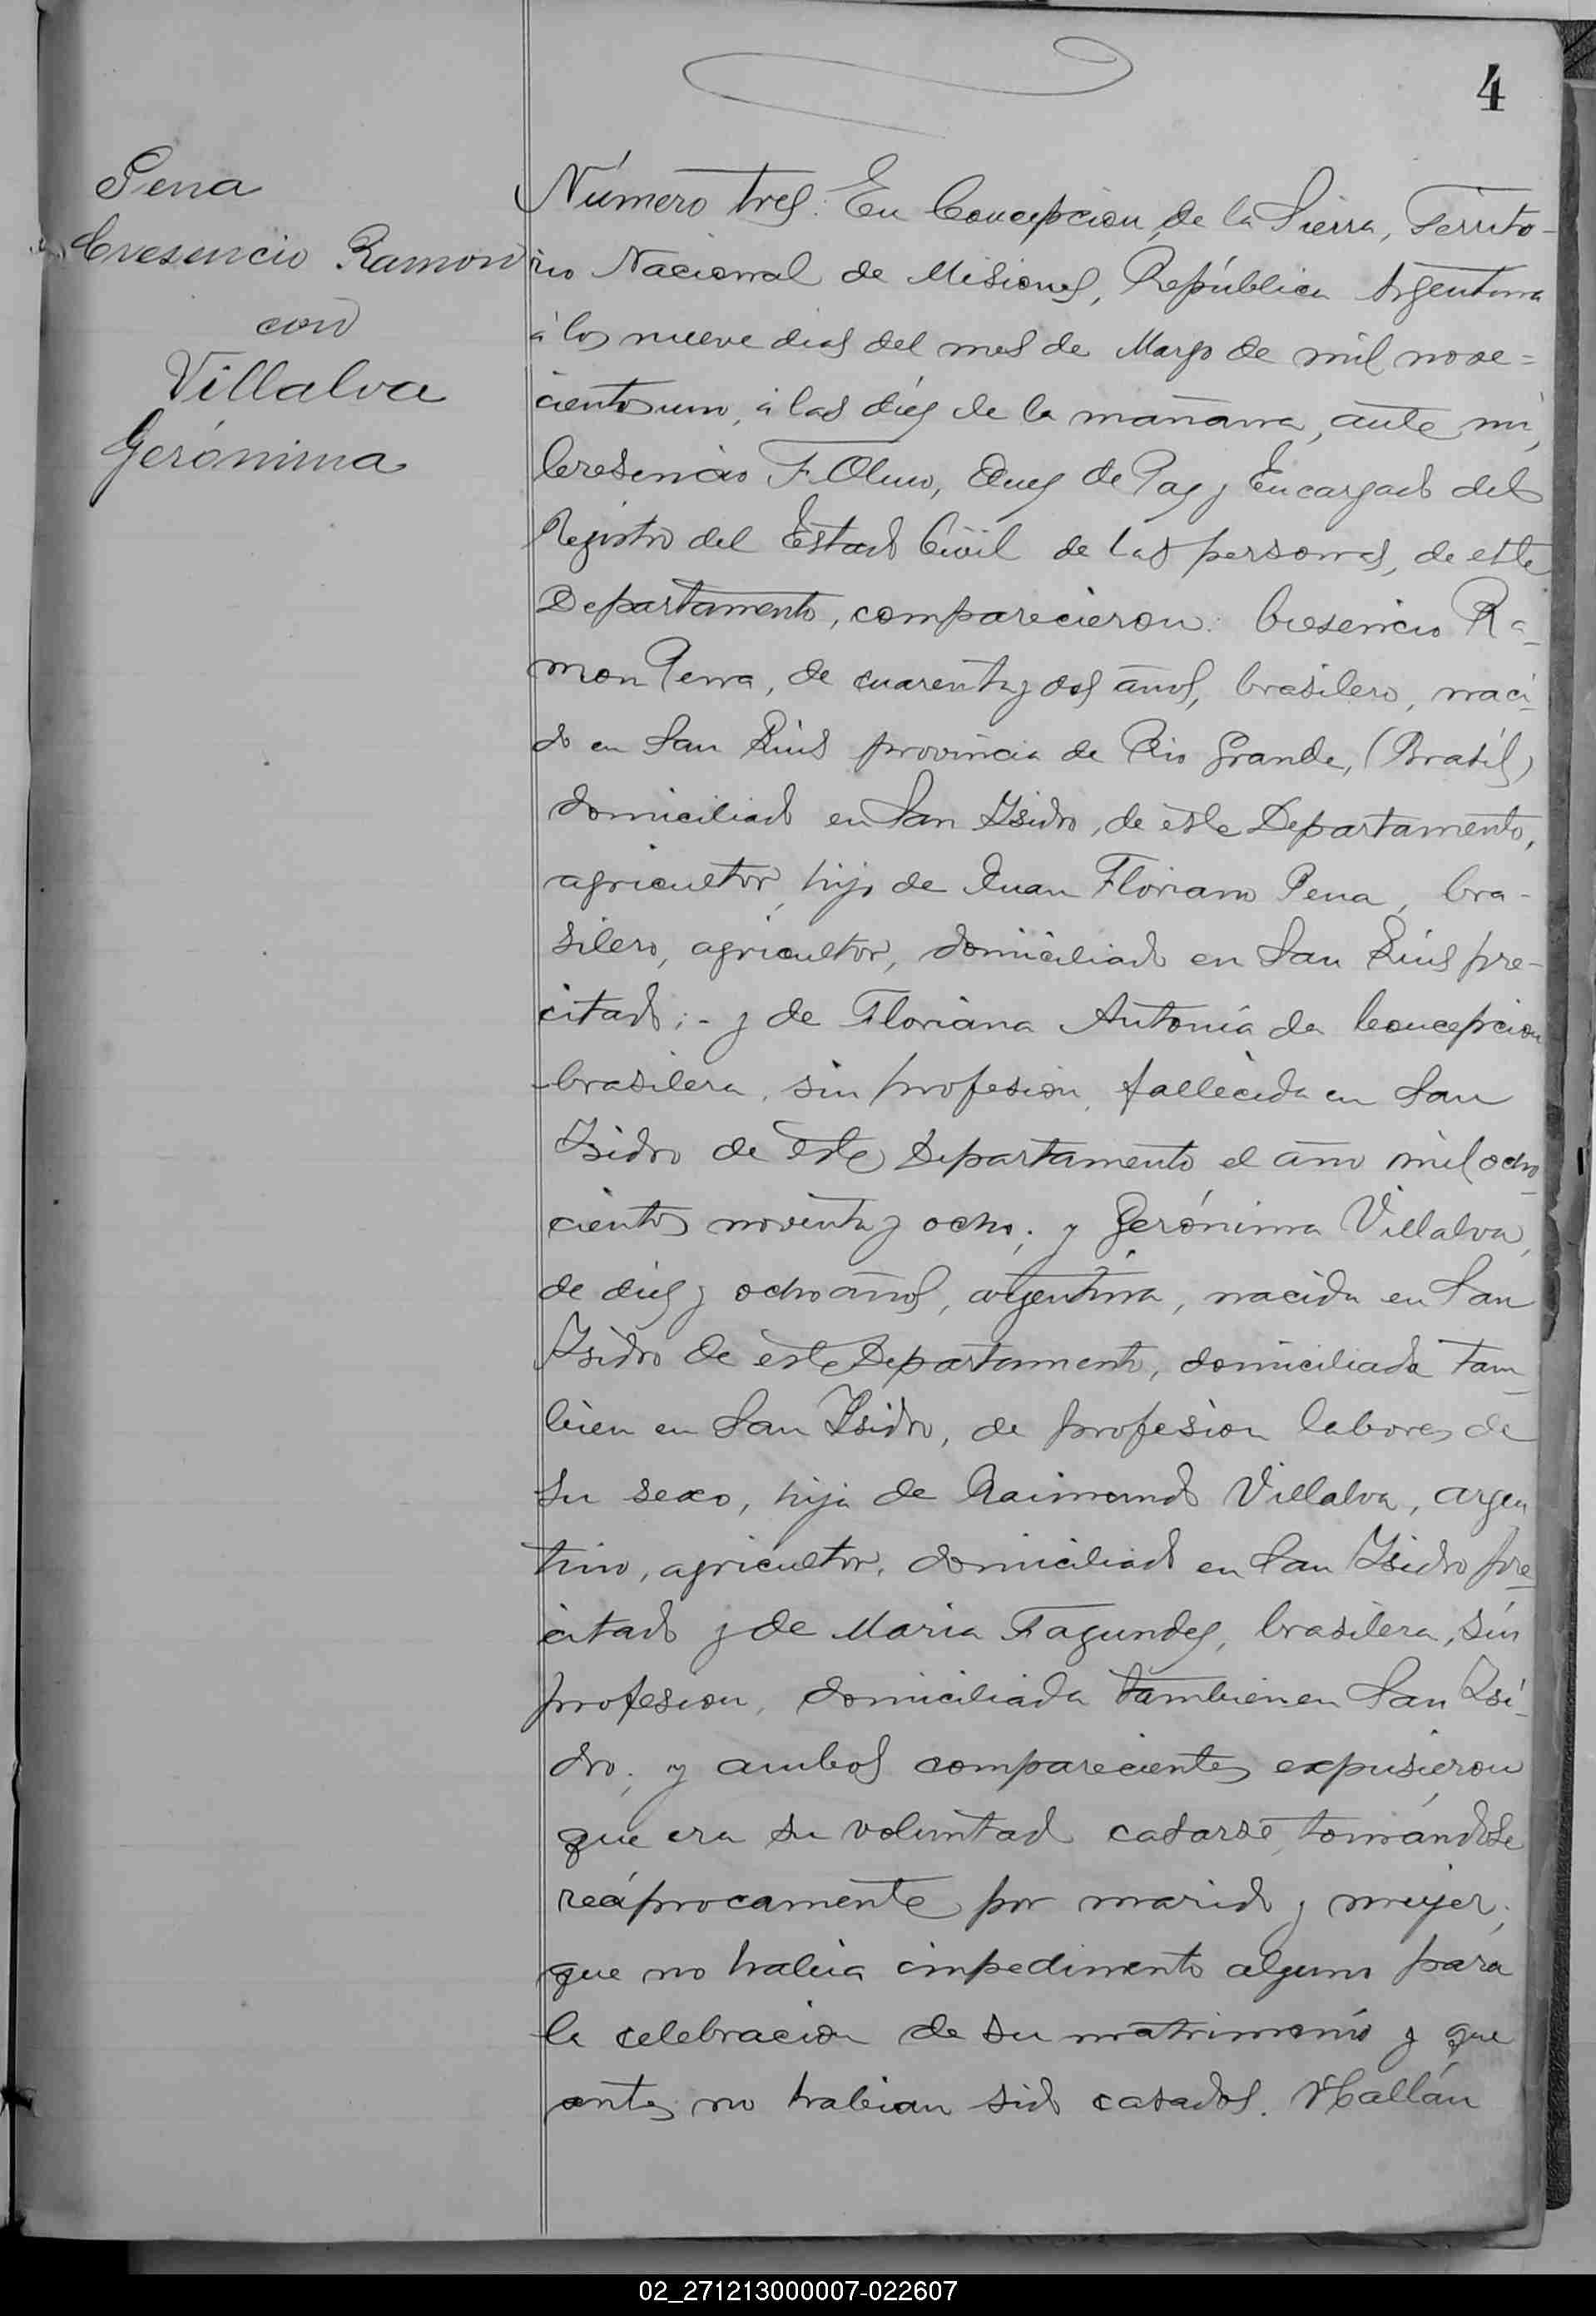 4
Pena
Cresencio Ramon
con
Villalva
Gerónima
Número tres. En Concepcion de la Sierra, Territo-
rio Nacional de Misiones, República Argentina
á los nueve dias del mes de Marzo de mil nove=
cientos uno, á las diez de la mañana, ante mi,
Cresencio F. Olmo, Juez de Paz y Encargado del
Registro del Estado Civil de las personas, de este
Departamento, comparecieron: Cresencio Ra-
mon Pena, de cuarenta y dos años, brasilero, naci-
do en San Luis provincia de Rio Grande, (Brasil)
domiciliado en San Isidro, de este Departamento,
agricultor, hijo de Juan Floriano Pena, bra-
silero, agricultor, domiciliado en San Luis pre-
citado;- y de Floriana Antonia da Concepcion
brasilera, sin profesion, fallecida en San
Isidro de este Departamento el año mil ocho-
cientos noventa y ocho; y Gerónima Villalva,
de diez y ocho años, argentina, nacida en San
Isidro de este Departamento, domiciliada tam-
bien en San Isidro, de profesion labores de
su sexo, hija de Raimundo Villalva, argen
tino, agricultor, domiciliado en San Isidro pre-
citado y de Maria Fagundez, brasilera, sin
profesion, domiciliada tambien en San Isi-
dro; y ambos comparecientes expusieron
que era su voluntad casarse, tomándose
reciprocamente por marido y mujer;
que no habia impedimento alguno para
la celebracion de su matrimonio y que
antes no habian sido casados. Hallán
02_271213000007-022607